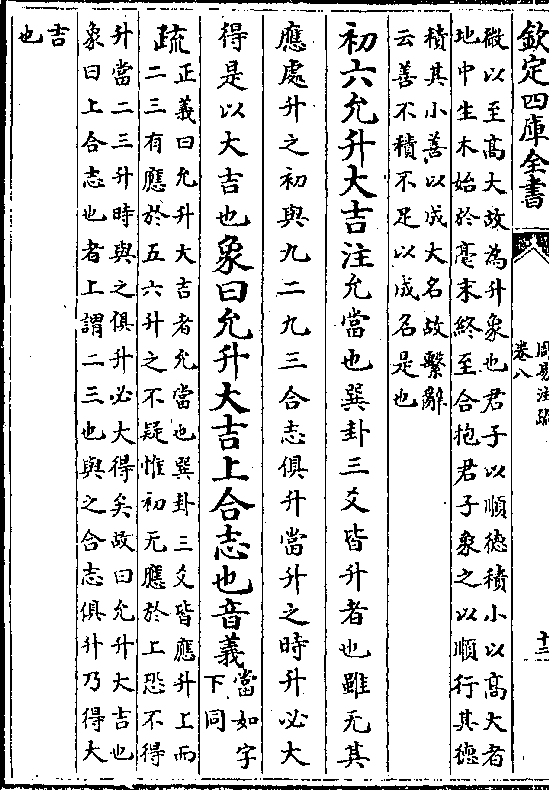 欽定四庫全書
周易注疏
卷八
十三
微以至髙大故為升象也君子以順德積小以髙大者
地中生木始於毫末終至合抱君子象之以順行其德
積其小善以成大名故繫辭
云善不積不足以成名是也
初六允升大吉注允當也巽卦三爻皆升者也雖无其
應處升之初與九二九三合志俱升當升之時升必大
得是以大吉也象曰允升大吉上合志也音義當如字
下同
疏正義曰允升大吉者允當也巽卦三爻皆應升上而
二三有應於五六升之不疑惟初无應於上恐不得
升當二三升時與之俱升必大得矣故曰允升大吉也
象曰上合志也者上謂二三也與之合志俱升乃得大
吉
也